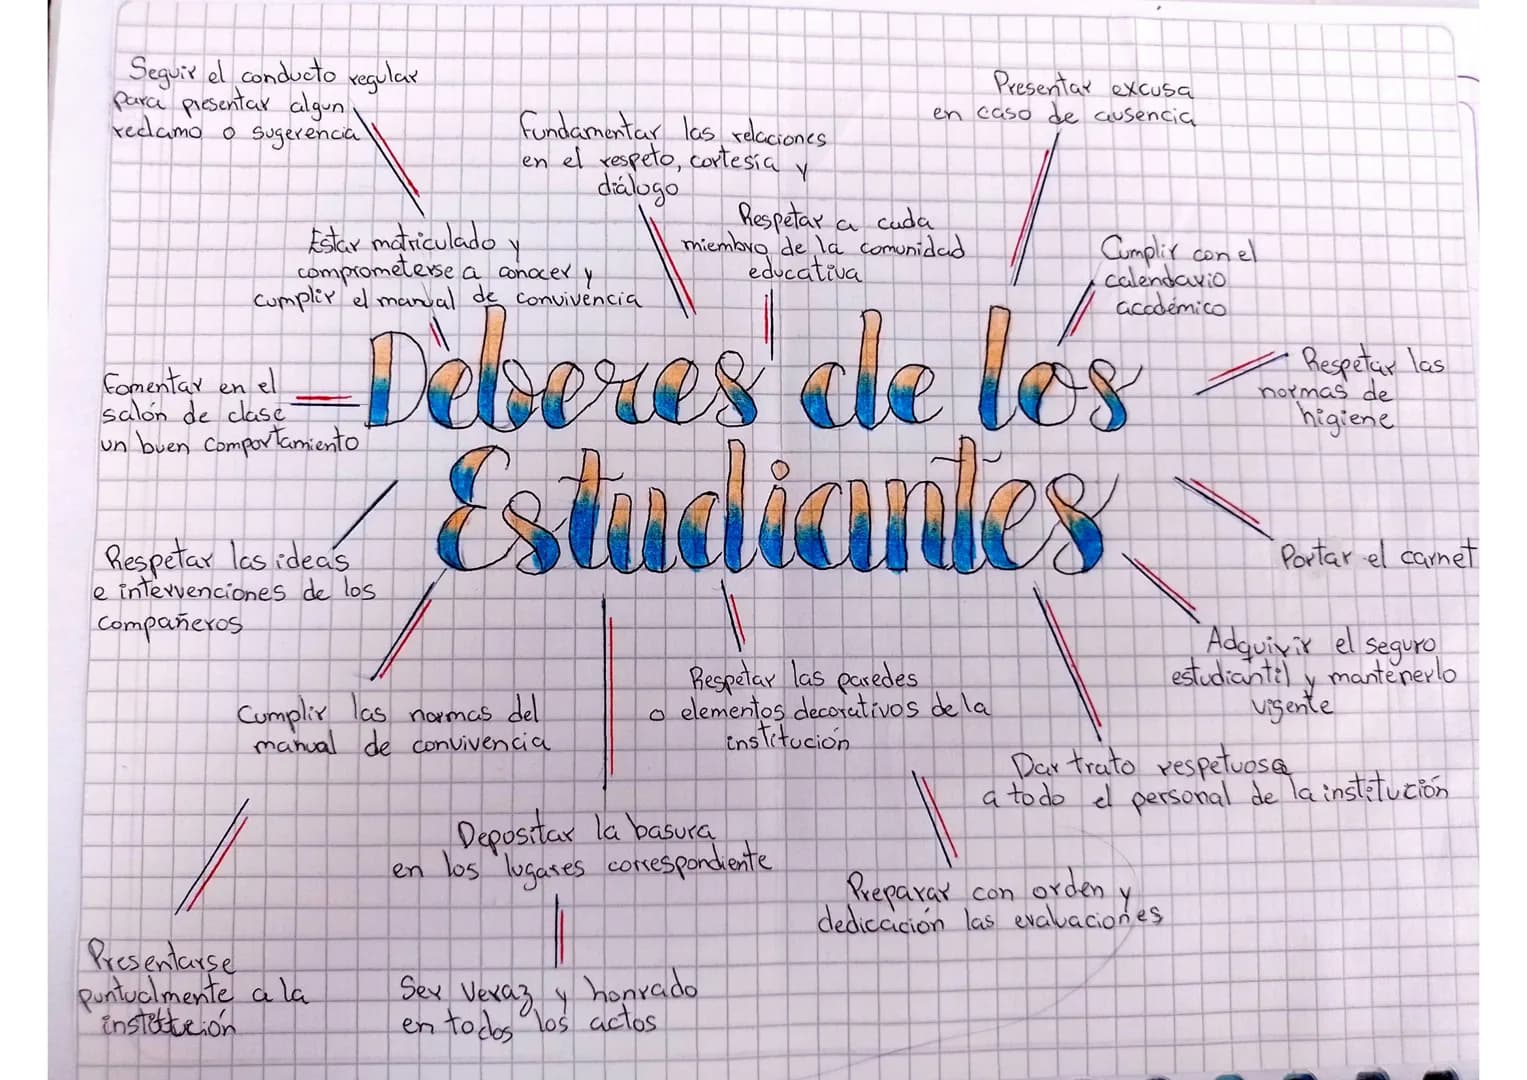 Seguir el conducto regular
para presentar algun
reclamo o sugerencia
Fundamentar las relaciones
en el respeto, cortesía y
diálogo
Presentar excusa
en caso de ausencia
Estar matriculado y
comprometerse a conocer y
cumplir el manual de convivencia
Respetar a cada
miembro de la comunidad
educativa
Cumplir con el
calendario
académico
Fomentar en el
salón de clase
un buen comportamiento
Deberes de los
Estudiantes
Respetar las
normas de
higiene
Respetar las ideas
e intervenciones de los
compañeros
Portar el carnet
Cumplir las normas del
manual de convivencia
Respetar las paredes
o elementos decorativos de la
institución
Adquirir el seguro
estudiantil y mantenerlo
vigente
Dar trato respetuoso
a todo el personal de la institución
Depositar la basura
en los lugares correspondiente
Preparar con orden y
dedicación las evaluaciones
Presentarse
puntualmente a la
institución
Ser veraz y honrado
en todos los actos